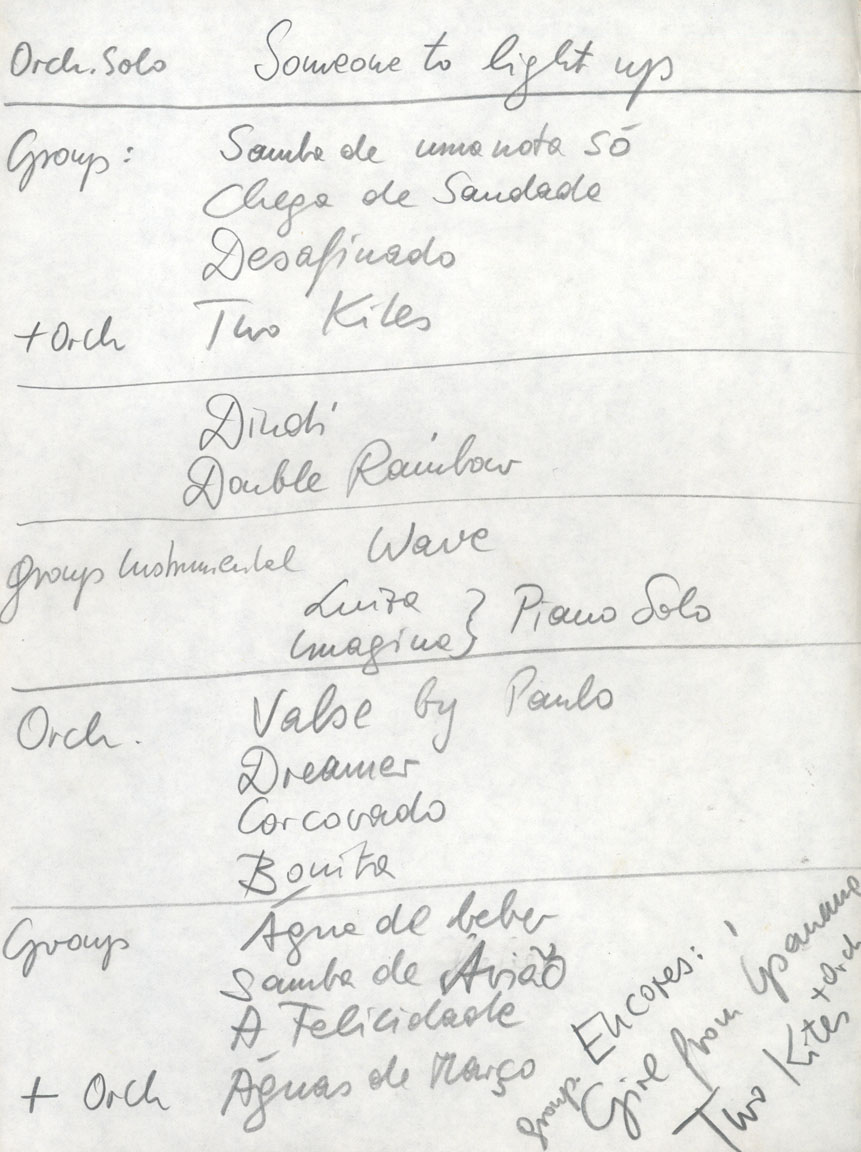 Orch. Solo Someone to light up
Group: Samba de uma nota só
Chega de Saudade
Desafinado
+ Orch Two Kites
Dindi
Double Rainbow
Group Instrumental Wave
Luiza } Piano Solo
Imagina
Orch. Valse by Paulo
Dreamer
Corcovado
Bonita
Group Água de beber
Samba de Avião
A Felicidade
+ Orch Águas de Março
Encores:
Group. Girl from Ipanema
Two Kites + Orch